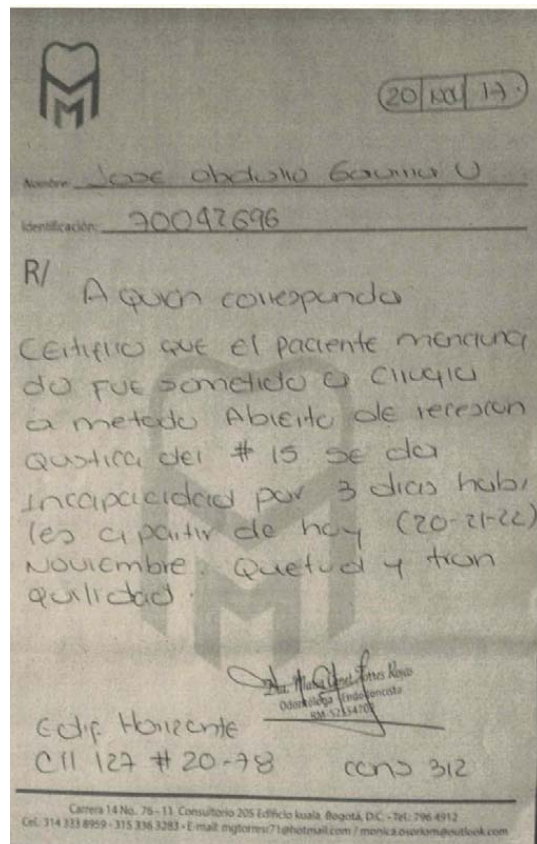 20 | Nov | 17.
Nombre: Jose Obdulio Gaviria U
Identificación: 70042696
R/
A quien corresponda
Certifico que el paciente menciona
do fue sometido a cirugia
a metodo Abierto de reseccion
Quistica del # 15 se da
Incapacidad por 3 dias habi
les a partir de hoy (20-21-22)
Noviembre. Quetud y tran
quilidad.
Dra. Maria Torres Rojas
Odontóloga Endodoncista
Edif Horizonte
Cll 127 # 20-78 cons 312
Carrera 14 No. 76 - 11 Consultorio 205 Edificio kuala. Bogotá, D.C. - Tel.: 796 4912
Cel.: 314 333 8959 - 315 336 3283 - E-mail: mgtorresr71@hotmail.com / monica.osoriom@outlook.com